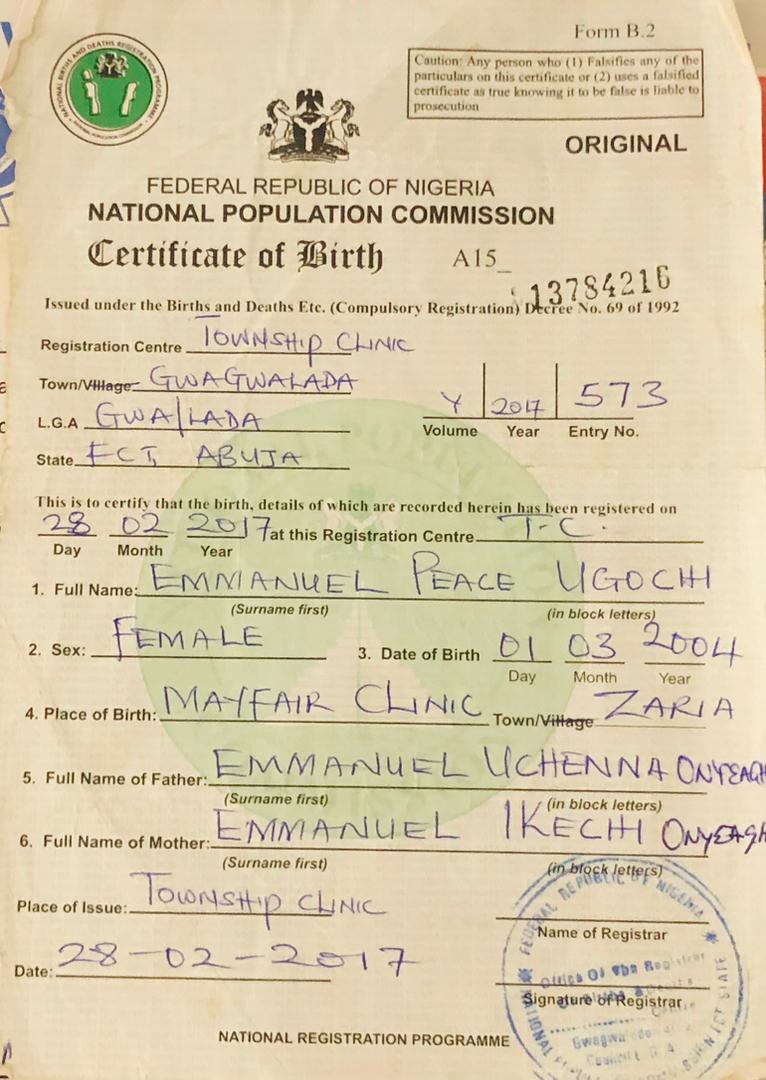 Form B.2
Caution: Any person who (1) Falsifies any of the
particulars on this certificate or (2) uses a falsified
certificate as true knowing it to be false is liable to
prosecution
NATIONAL BIRTHS AND DEATHS REGISTRATION PROGRAMME
NATIONAL POPULATION COMMISSION
ORIGINAL
FEDERAL REPUBLIC OF NIGERIA
NATIONAL POPULATION COMMISSION
Certificate of Birth A15
13784216
Issued under the Births and Deaths Etc. (Compulsory Registration) Decree No. 69 of 1992
Registration Centre TOWNSHIP CLINIC
Town/Village GWAGWALADA
L.G.A GWA/LADA
Y 2017 573
Volume Year Entry No.
State FCT, ABUJA
This is to certify that the birth, details of which are recorded herein has been registered on
28 02 2017 at this Registration Centre T.C.
Day Month Year
1. Full Name: EMMANUEL PEACE UGOCHI
(Surname first) (in block letters)
2. Sex: FEMALE 3. Date of Birth 01 03 2004
Day Month Year
4. Place of Birth: MAYFAIR CLINIC Town/Village ZARIA
5. Full Name of Father: EMMANUEL UCHENNA ONYEAGH
(Surname first) (in block letters)
6. Full Name of Mother: EMMANUEL IKECHI ONYEAGH
(Surname first) (in block letters)
Place of Issue: TOWNSHIP CLINIC
Name of Registrar
Date: 28-02-2017
Signature of Registrar
FEDERAL REPUBLIC OF NIGERIA
Office Of The Registrar
NATIONAL REGISTRATION PROGRAMME